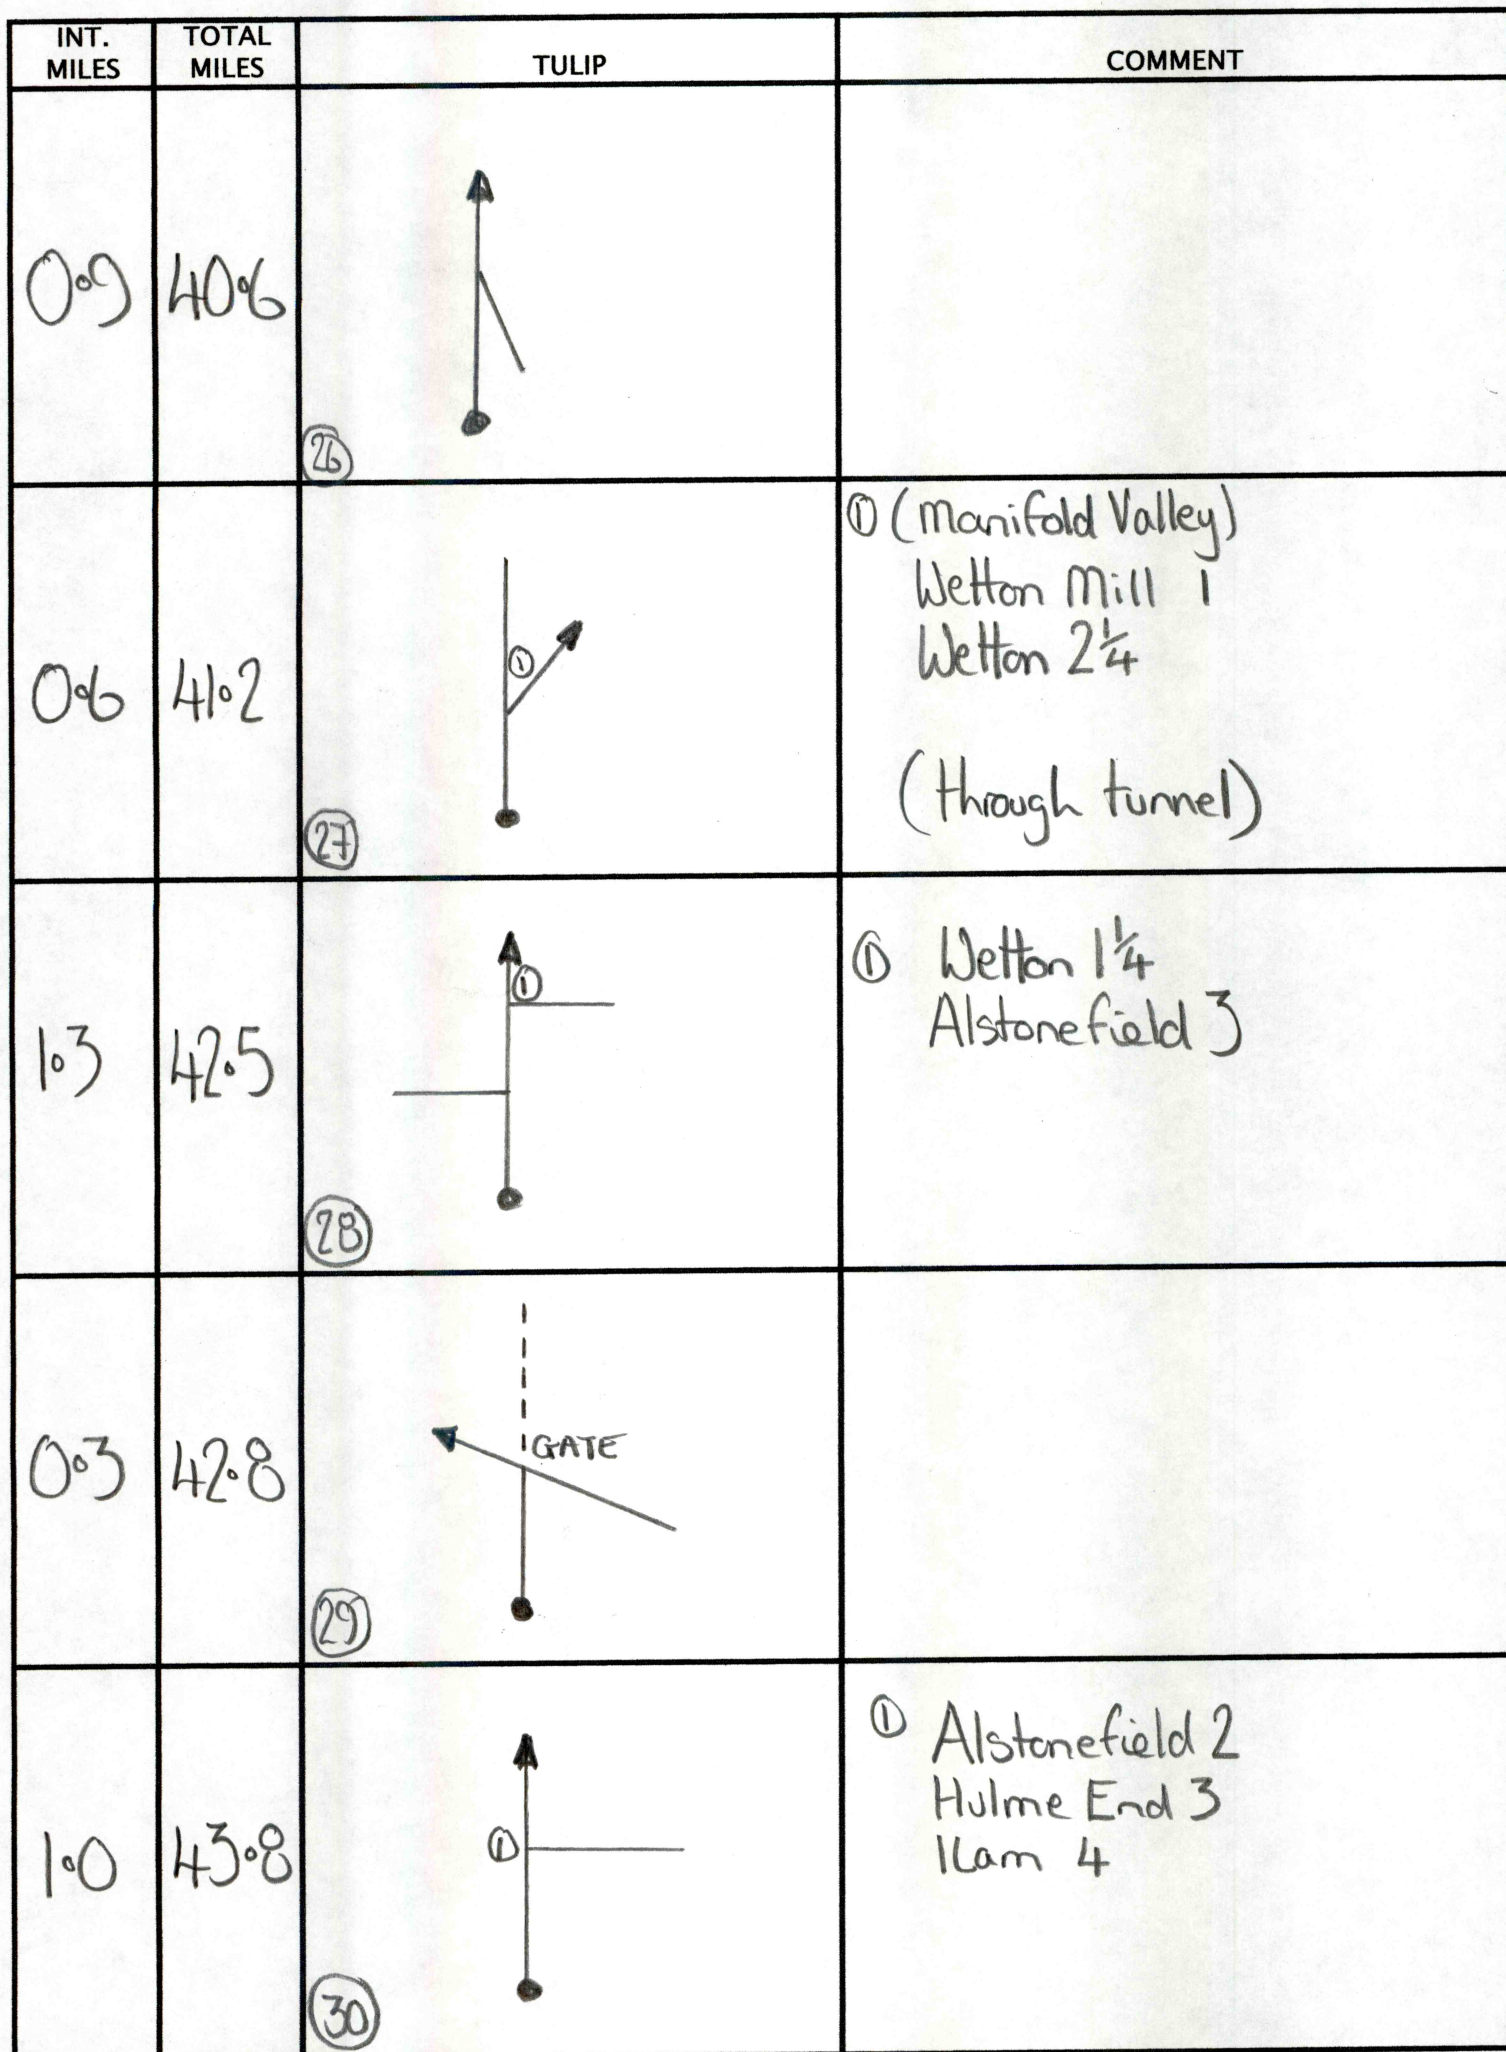 INT. MILES
TOTAL MILES
TULIP
COMMENT
0.9
40.6
26
0.6
41.2
①
27
① (Manifold Valley)
Wetton Mill 1
Wetton 2¼
(through tunnel)
1.3
42.5
①
28
① Wetton 1¼
Alstonefield 3
0.3
42.8
GATE
29
1.0
43.8
①
30
① Alstonefield 2
Hulme End 3
Ilam 4